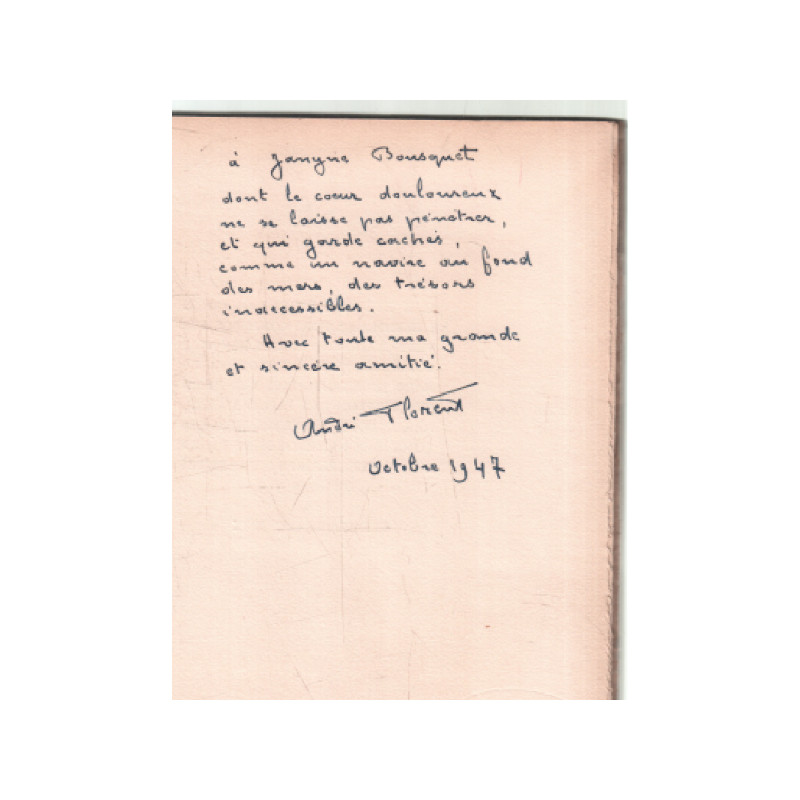 à Janyne Bousquet
dont le coeur douloureux
ne se laisse pas pénétrer,
et qui garde cachés,
comme un navire au fond
des mers, des trésors
inaccessibles.
Avec toute ma grande
et sincère amitié.
André Florent
Octobre 1947